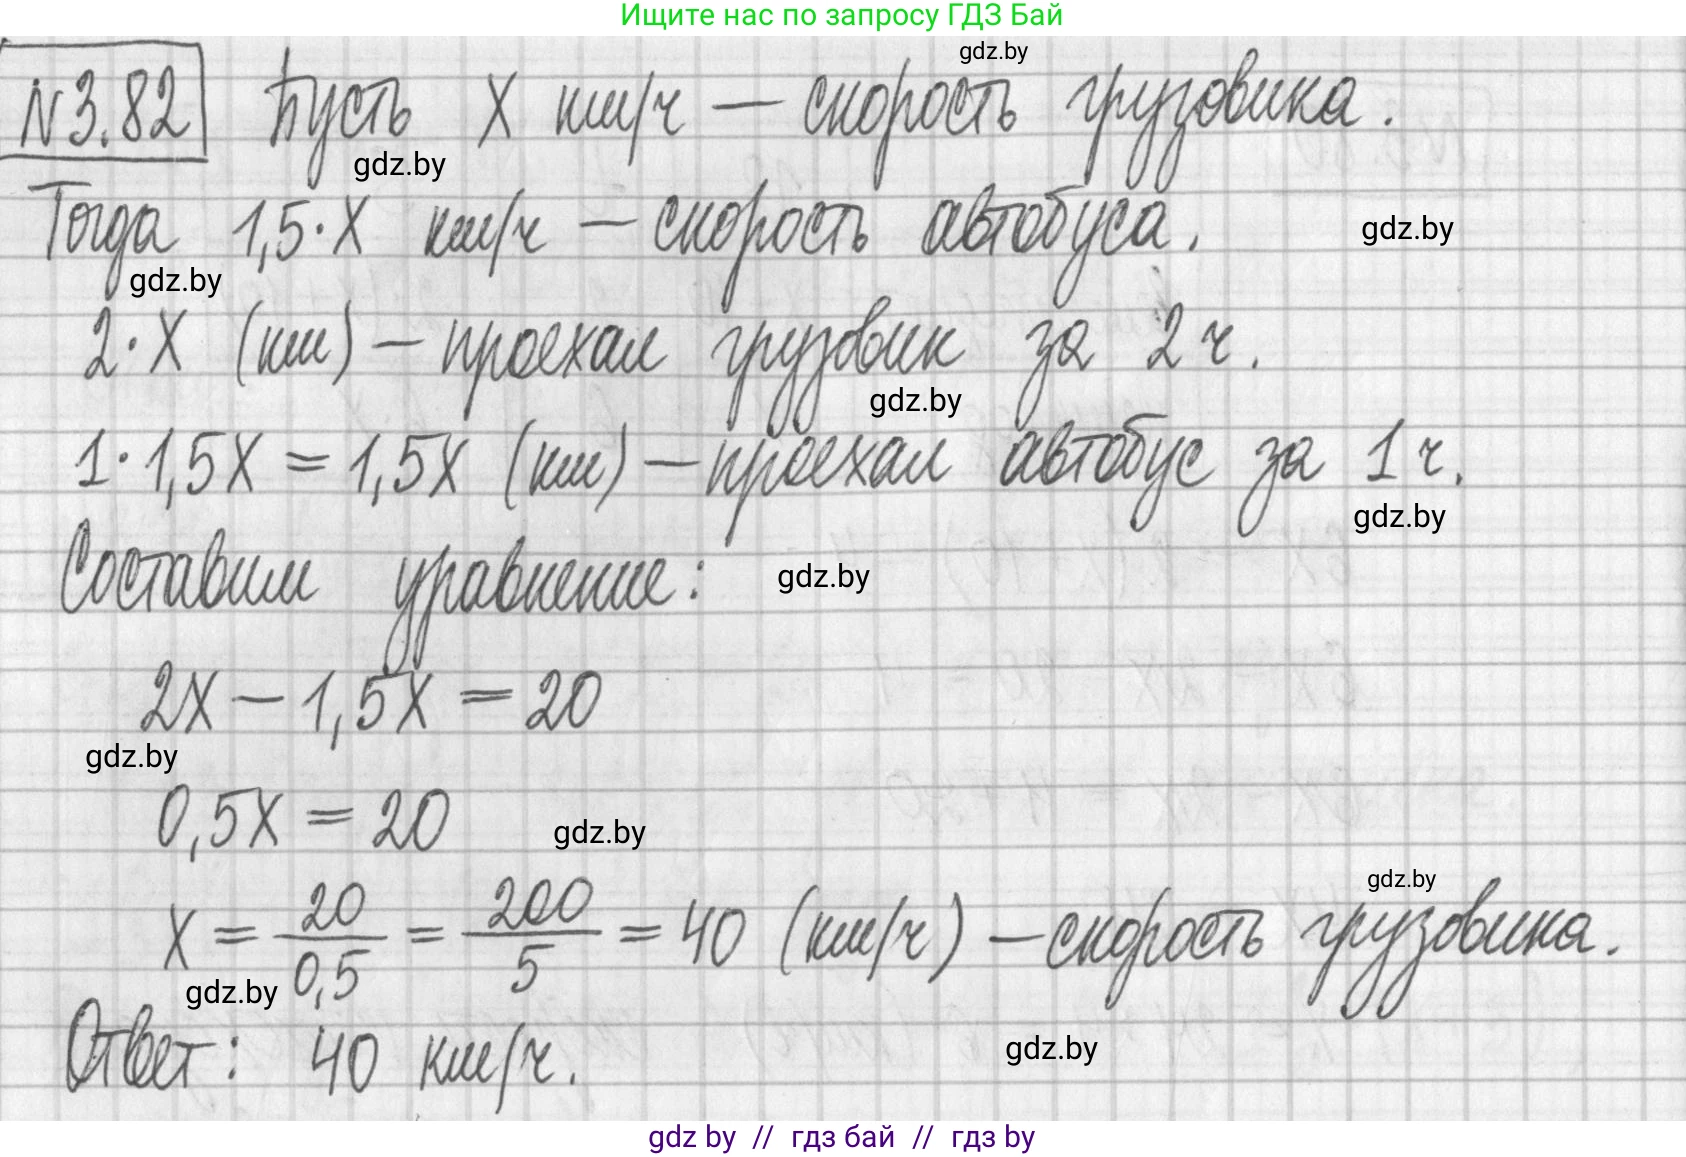 Ищите нас по запросу ГДЗ Бай
gdz.by
№3.82 Пусть x км/ч — скорость грузовика.
gdz.by
Тогда 1,5·x км/ч — скорость автобуса.
gdz.by
gdz.by
2·x (км) — проехал грузовик за 2 ч.
gdz.by
1·1,5x = 1,5x (км) — проехал автобус за 1 ч.
gdz.by
Составим уравнение:
gdz.by
2x − 1,5x = 20
gdz.by
0,5x = 20
gdz.by
gdz.by
x = 20/0,5 = 200/5 = 40 (км/ч) — скорость грузовика.
gdz.by
Ответ: 40 км/ч.
gdz.by
gdz by // гдз бай // гдз by